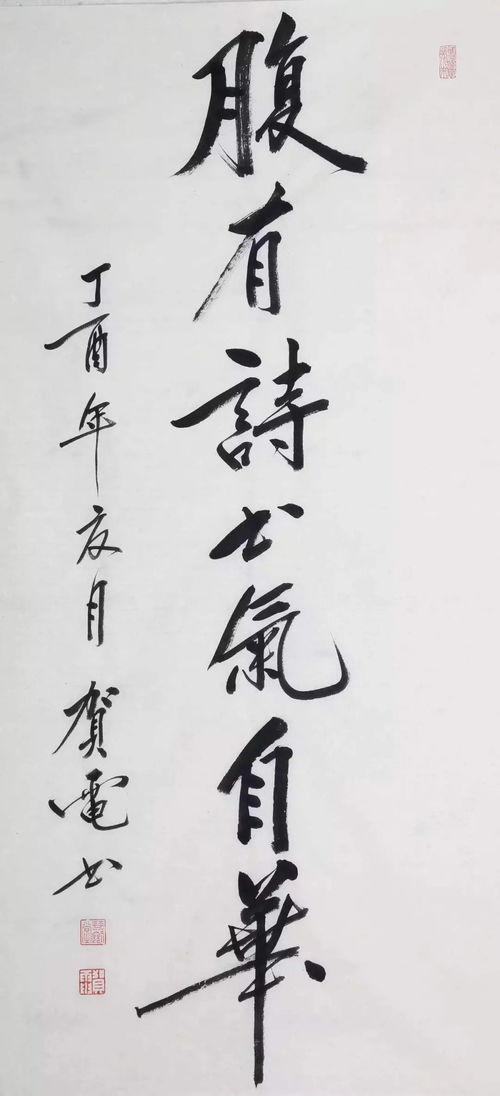 腹有詩书氣自華
丁酉年亥月賀電书